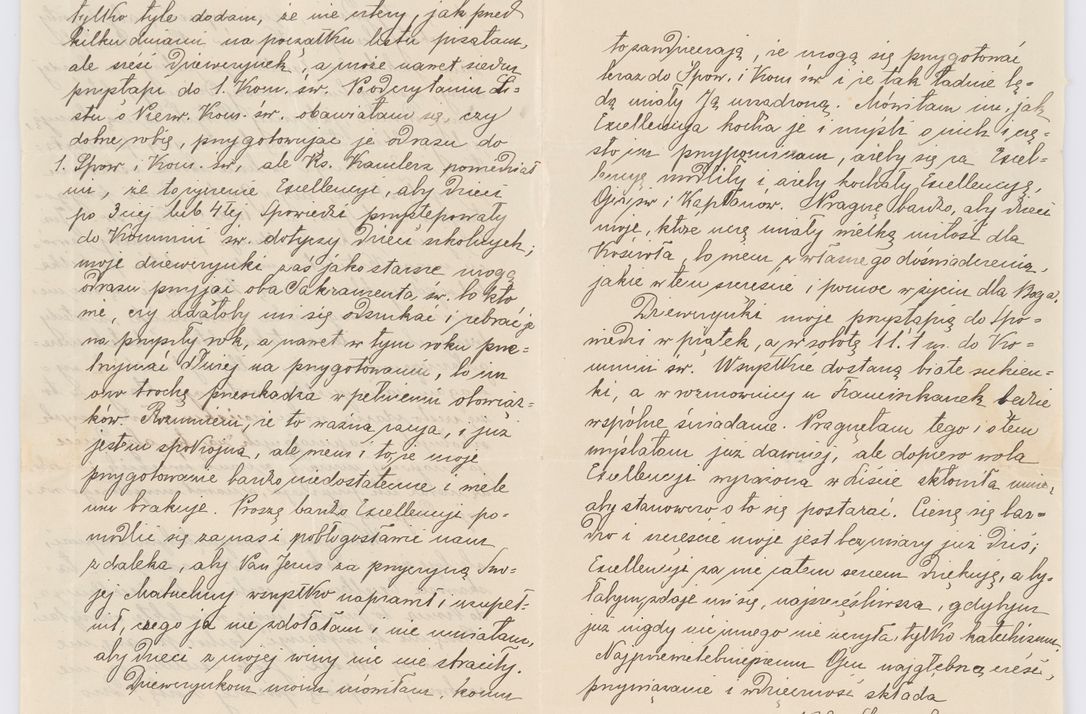 tylko tyle dodam, że nie cztery, jak przed
kilku dniami na początku listu pisałam,
ale sześć dziewczynek, a może nawet siedem
przystąpi do 1. Kom. św. Po odczytaniu Li-
stu o Pierw. Kom. św. obawiałam się, czy
dobrze robię, przygotowując je odrazu do
1. Spow. i Kom. św., ale Ks. Kanclerz powiedział
mi, że to życzenie Excellencyi, aby dzieci
po 3ciej lub 4tej Spowiedzi przystępowały
do Kommunii św. dotyczy dzieci szkolnych;
moje dziewczynki zaś jako starsze mogą
odrazu przyjąć oba Sakramenta św. bo kto
wie, czy udałoby mi się odszukać i zebrać je
na przyszły rok, a nawet w tym roku prze-
trzymać dłużej na przygotowaniu, bo im
ono trochę przeszkadza w pełnieniu obowiąz-
ków. Rozumiem, że to ważna racya, i już
jestem spokojna, ale mimo to, że moje
przygotowanie bardzo niedostateczne i wiele
mu brakuje. Proszę bardzo Excellencyi po-
modlić się za nas i pobłogosławić nam
z daleka, aby Pan Jezus za przyczyną Swo-
jej Matuchny wszystko naprawił i uzupeł-
nił, czego ja nie zdołałam i nie umiałam,
aby dzieci z mojej winy nic nie straciły.
Dziewczynkom moim mówiłam, komu
to zawdzięczają, że mogą się przygotować
teraz do Spow. i Kom św. i że tak ładnie bę-
dą miały Ją urządzoną. Mówiłam im, jak
Excellencya kocha je i myśli o nich i czę-
sto im przypominam, ażeby się za Excel-
lencyę modliły i ażeby kochały Excellencyę,
Ojca św i Kapłanów. Pragnę bardzo, aby dzieci
moje, które uczę miały wielką miłość dla
Kościoła, bo wiem z własnego doświadczenia,
jakie w tem szczęście i pomoc w życiu dla Boga.
Dziewczynki moje przystąpią do Spo-
wiedzi w piątek, a w sobotę 11. t.m. do Ko-
munii św. Wszystkie dostaną białe sukien-
ki, a w rozmównicy u Franciszkanek będzie
wspólne śniadanie. Pragnęłam tego i o tem
myślałam już dawniej, ale dopiero wola
Excellencyi wyrażona w Liście skłoniła mnie,
aby stanowczo o to się postarać. Cieszę się bar-
dzo i szczęście moje jest bez miary już dziś;
Excellencyi za nie całem sercem dziękuję, a by-
łabym, zdaje mi się, najszczęśliwsza, gdybym
już nigdy nic innego nie uczyła, tylko katechizmu.
Najprzewielebniejszemu Ojcu najgłębszą cześć,
przywiązanie i wdzięczność składa